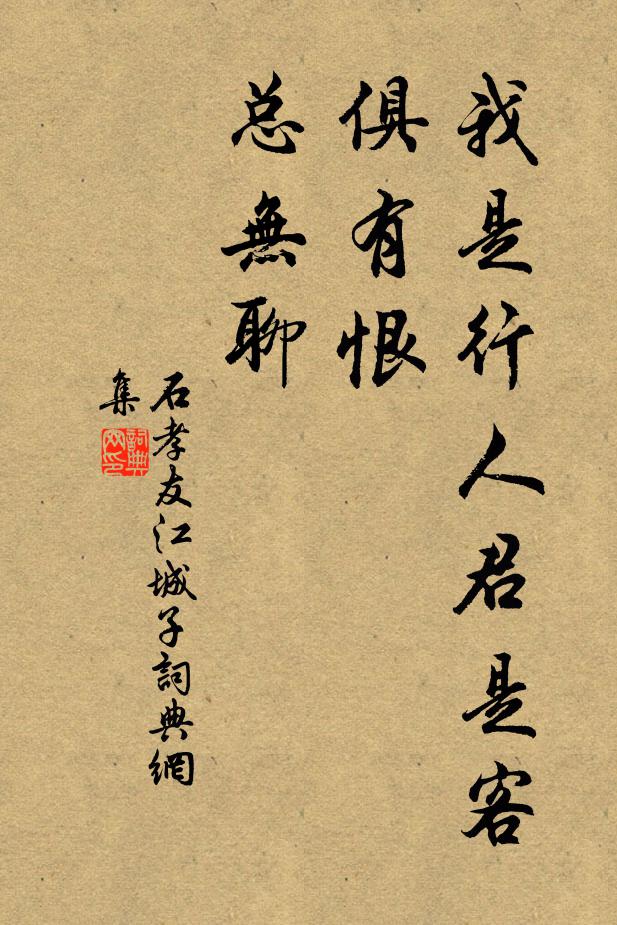 我是行人君是客
俱有恨
总無聊
石孝友江城子詞典網
集
詞典
网印